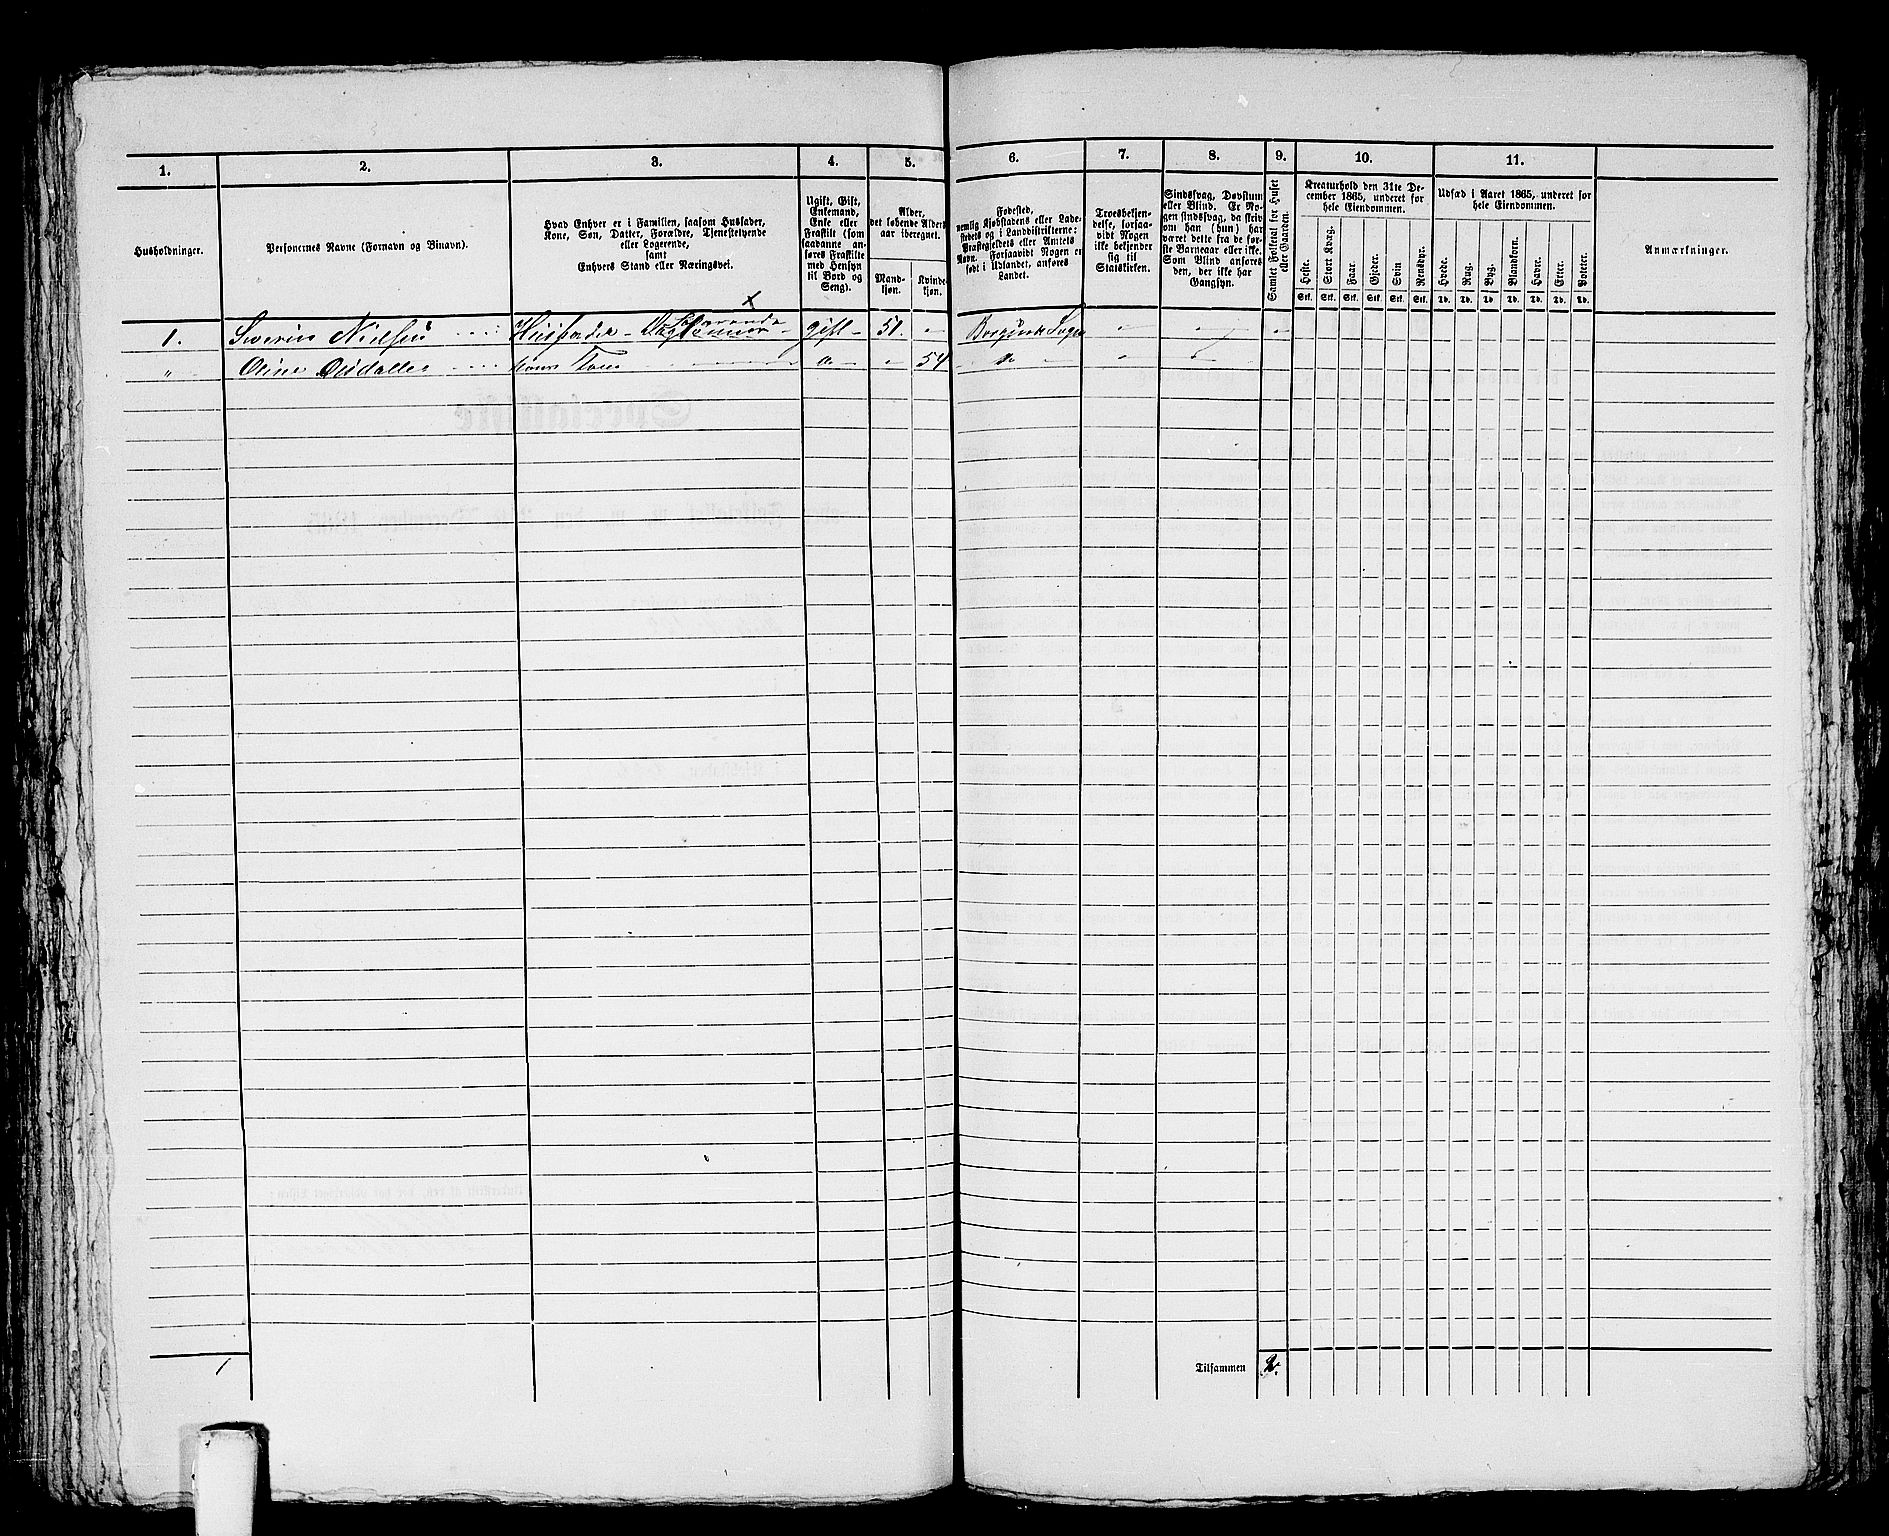 1. 2. 3. 4. 5. 6. 7. 8. 9. 10. 11.
Husholdninger.
Personernes Navne (Fornavn og Binavn).
Hvad Enhver er i Familien, saasom Husfader,
Kone, Søn, Datter, Forældre, Tjenestetyende
eller Logerende,
samt
Enhvers Stand eller Næringsvei.
Ugift, Gift,
Enkemand,
Enke eller
Fraskilt (som
saadanne an-
føres Fraskilte
med Hensyn
til Bord og
Seng).
Alder,
det løbende Alders-
aar iberegnet.
Mand-
kjøn.
Kvinde-
kjøn.
Fødested,
nemlig Kjøbstadens eller Lade-
stedets og i Landdistrikterne:
Præstegjeldets eller Amtets
Navn. Forsaavidt Nogen er
født i Udlandet, anføres
Landet.
Troesbekjen-
delse, forsaa-
vidt Nogen
ikke bekjender
sig til
Statskirken.
Sindssvag, Døvstum
eller Blind. Er No-
gen sindssvag, da skriv
om han (hun) har
været dette fra de før-
ste Barneaar eller ikke.
Som Blind anføres
den, der ikke har
Gangsyn.
Samlet Folketal for Huset
eller Gaarden.
Kreaturhold den 31te De-
cember 1865, underet for
hele Eiendommen.
Heste. Stort Kvæg. Faar. Gjeder. Svin Rensdyr.
Stk. Stk. Stk. Stk. Stk. Stk.
Udsæd i Aaret 1865, underet for
hele Eiendommen.
Hvede. Rug. Byg. Blandkorn. Havre. Erter. Poteter.
Td. Td. Td. Td. Td. Td. Td.
Anmærkninger.
1. Severin Nielsen Huusfader gift 51.
54
Tilsammen 2.
1